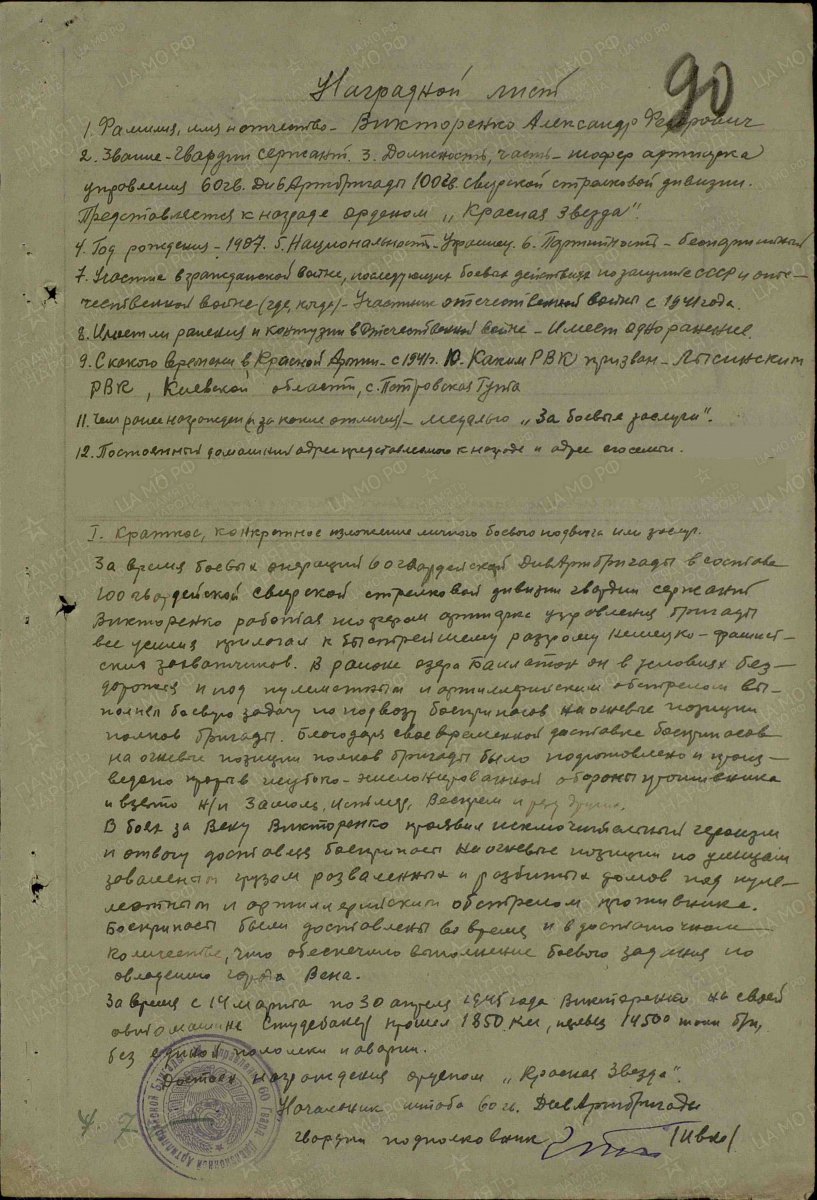 90
Наградной лист
1. Фамилия, имя и отчество - Викторенко Александр Федорович
2. Звание - Гвардии сержант. 3. Должность, часть - шофер артпарка
управления 60 гв. ДивАртбригады 100 гв. свирской стрелковой дивизии.
Представляется к награде орденом "Красная Звезда".
4. Год рождения - 1907. 5. Национальность - Украинец. 6. Партийность - беспартийный
7. Участие в гражданской войне, последующих боевых действиях по защите СССР и оте-
чественной войне (где, когда) - Участник отечественной войны с 1941 года.
8. Имеет ли ранения и контузии в Отечественной войне - Имеет одно ранение.
9. С какого времени в Красной Армии - с 1941г. 10. Каким РВК призван - Лысинским
РВК, Киевской области, с. Петровская Гута
11. Чем ранее награжден (за какие отличия) - медалью "За боевые заслуги".
12. Постоянный домашний адрес представляемого к награде и адрес его семьи.
I. Краткое, конкретное изложение личного боевого подвига или заслуг.
За время боевых операций 60 гвардейской ДивАртбригады в составе
100 гвардейской свирской стрелковой дивизии гвардии сержант
Викторенко работая шофером артпарка управления бригады
все усилия прилагал к быстрейшему разгрому немецко-фашист-
ских захватчиков. В районе озера Балатон он в условиях без-
дорожья и под пулеметным и артиллерийским обстрелом вы-
полнял боевую задачу по подвозу боеприпасов на огневые позиции
полков бригады. Благодаря своевременной доставке боеприпасов
на огневые позиции полков бригады было подготовлено и произ-
ведено прорыв глубоко-эшелонированной обороны противника
и взято н/п Замоль, Веспрем и ряд других.
В боях за Вену Викторенко проявил исключительный героизм
и отвагу доставляя боеприпасы на огневые позиции по улицам
заваленным грузом разваленных и разбитых домов под пуле-
метным и артиллерийским обстрелом противника.
Боеприпасы были доставлены во время и в достаточном
количестве, что обеспечило выполнение боевого задания по
овладению города Вена.
За время с 14 марта по 30 апреля 1945 года Викторенко на своей
автомашине Студебакер прошел 1850 км, 14500 тонн
без единой поломки и аварии.
Достоен награждения орденом "Красная Звезда".
Начальник штаба 60 гв. ДивАртбригады
гвардии подполковник /Гивко/